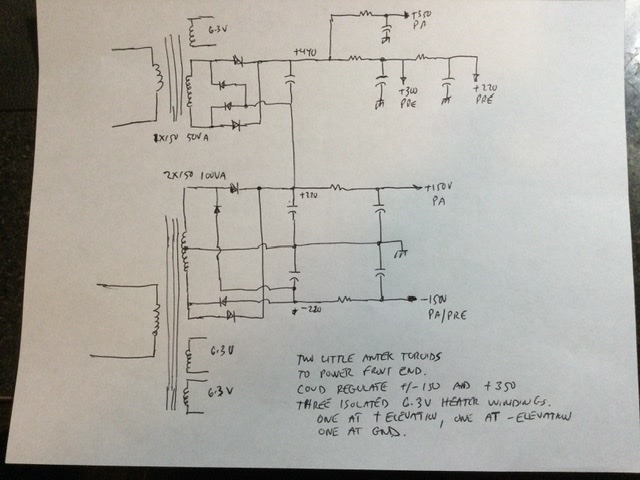 6.3V
+350
PA
+440
+300
PRE
+220
PRE
1X150 50VA
2X150 100VA
+220
+150V
PA
-220
-150V
PA/PRE
6.3V
6.3V
TWO LITTLE ANTEK TOROIDS
TO POWER FRONT END.
COUD REGULATE +/-150 AND +350
THREE ISOLATED 6.3V HEATER WINDINGS.
ONE AT + ELEVATION, ONE AT - ELEVATION
ONE AT GND.